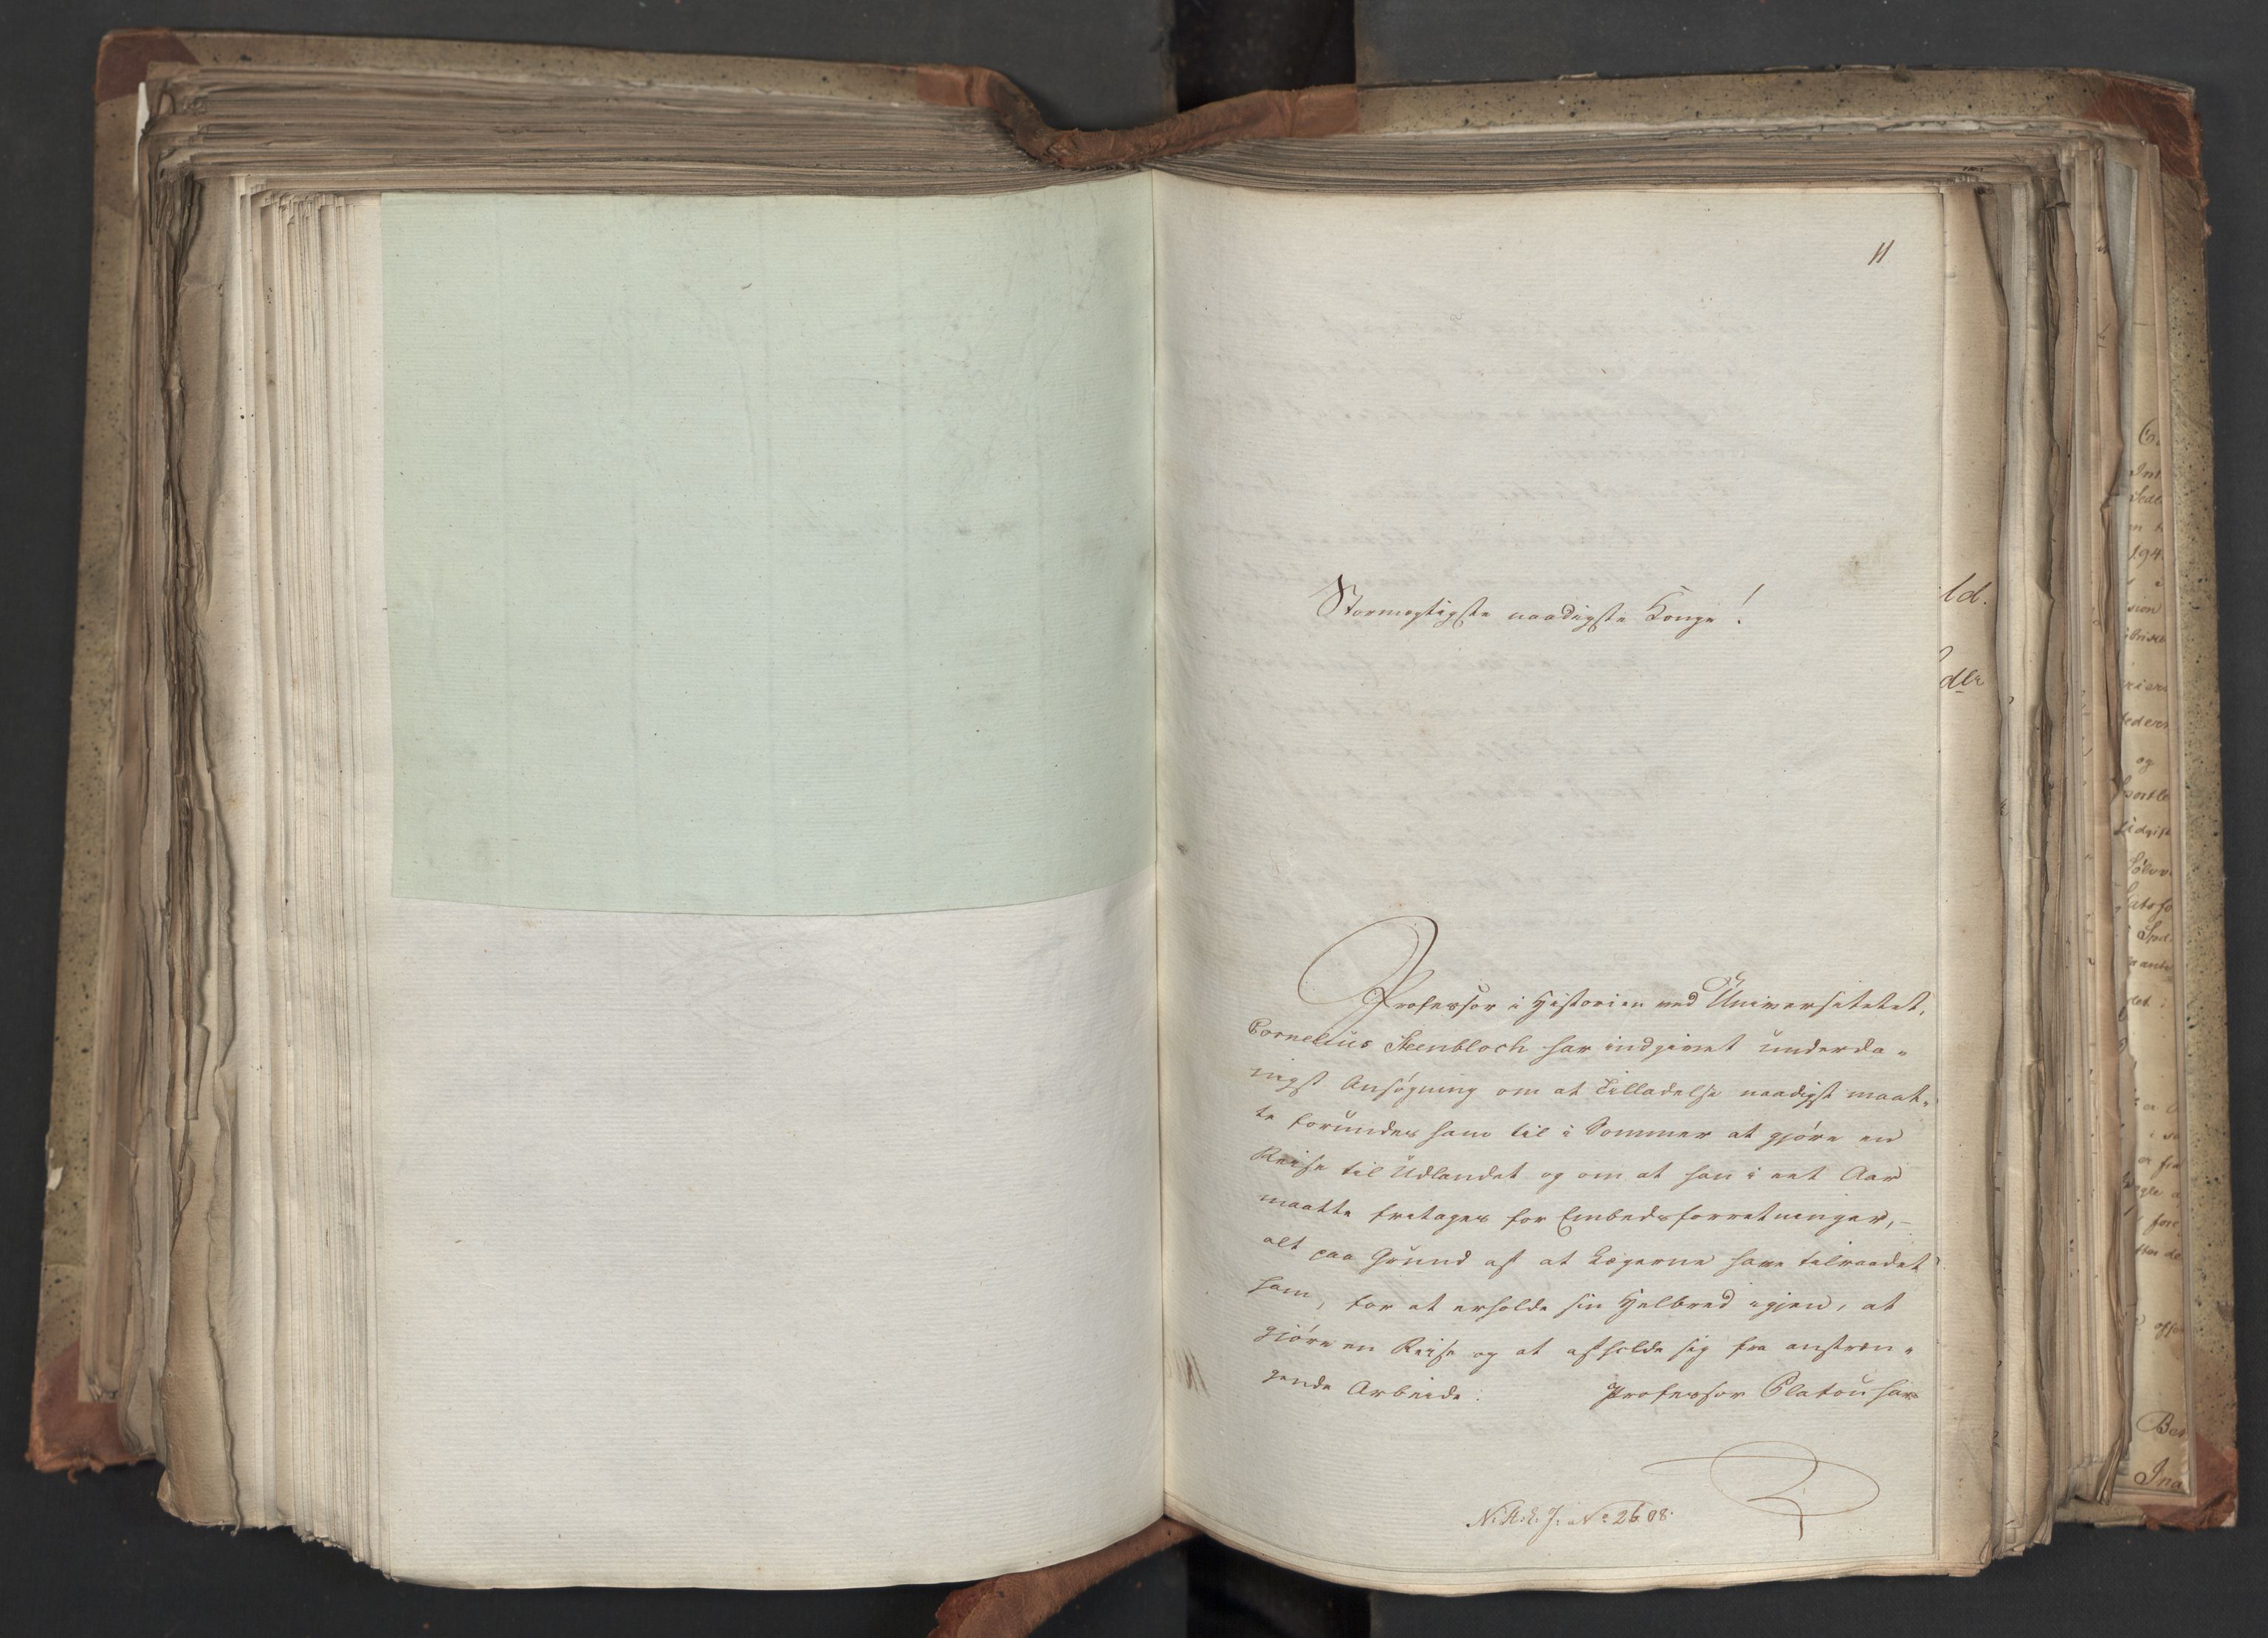 11
Stormægtigste naadigste Konge!
Professor i Historien ved Universitetet,
Cornelius Steenbloch har indgivet underda-
nigst Ansøgning om at Tilladelse naadigst maat-
te forundes ham til i Sommer at gjøre en
Reise til Udlandet og om at han i eet Aar
maatte fritages for Embedsforretninger, –
alt paa Grund af at Lægerne have tilraadet
ham, for at erholde sin Helbred igjen, at
gjøre en Reise og at afholde sig fra anstren-
gende Arbeide. Professor Platou har
N. A. E. J. No 2608.
ld.
dlr